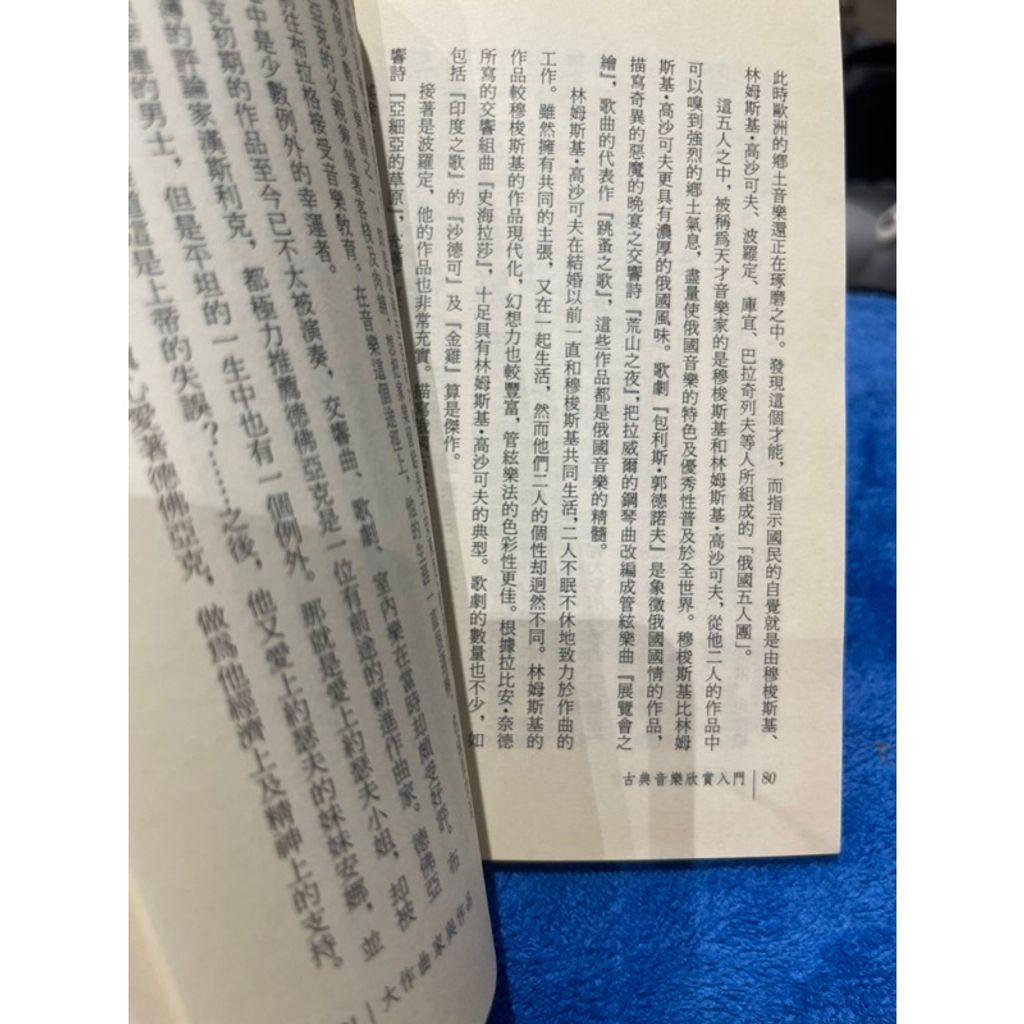 此時歐洲的鄉土音樂還正在琢磨之中。發現這個才能，而指示國民的自覺就是由穆梭斯基、
林姆斯基·高沙可夫、波羅定、庫宜、巴拉奇列夫等人所組成的「俄國五人團」。
這五人之中，被稱爲天才音樂家的是穆梭斯基和林姆斯基·高沙可夫，從他二人的作品中
可以嗅到強烈的鄉土氣息，盡量使俄國音樂的特色及優秀性普及於全世界。穆梭斯基比林姆
斯基·高沙可夫更具有濃厚的俄國風味。歌劇『包利斯·郭德諾夫』是象徵俄國國情的作品，
描寫奇異的惡魔的晚宴之交響詩『荒山之夜』，把拉威爾的鋼琴曲改編成管絃樂曲『展覽會之
繪』，歌曲的代表作『跳蚤之歌』，這些作品都是俄國音樂的精髓。
林姆斯基·高沙可夫在結婚以前一直和穆梭斯基共同生活，二人不眠不休地致力於作曲的
工作。雖然擁有共同的主張，又在一起生活，然而他們二人的個性却迥然不同。林姆斯基的
作品較穆梭斯基的作品現代化，幻想力也較豐富，管絃樂法的色彩性更佳。根據拉比安·奈德
所寫的交響組曲『史海拉莎』，十足具有林姆斯基·高沙可夫的典型。歌劇的數量也不少，如
包括『印度之歌』的『沙德可』及『金雞』算是傑作。
接著是波羅定，他的作品也非常充實。描寫
響詩『亞細亞的草原』，
古典音樂欣賞入門 80
在布拉格接受音樂教育。在音樂這個途徑上，他的生涯一直
中是少數例外的幸運者。
克初期的作品至今已不太被演奏，交響曲、歌劇、室內樂在當時却頗受好評。布
的評論家漢斯利克，都極力推薦德佛亞克是一位有前途的新進作曲家。德佛亞
幸運的男士，但是平坦的一生中也有一個例外。那就是愛上約瑟夫小姐，却被
道這是上帝的失誤？……之後，他又愛上約瑟夫的妹妹安娜，並
心愛著德佛亞克，做爲他經濟上及精神上的支持。
大作曲家與作品